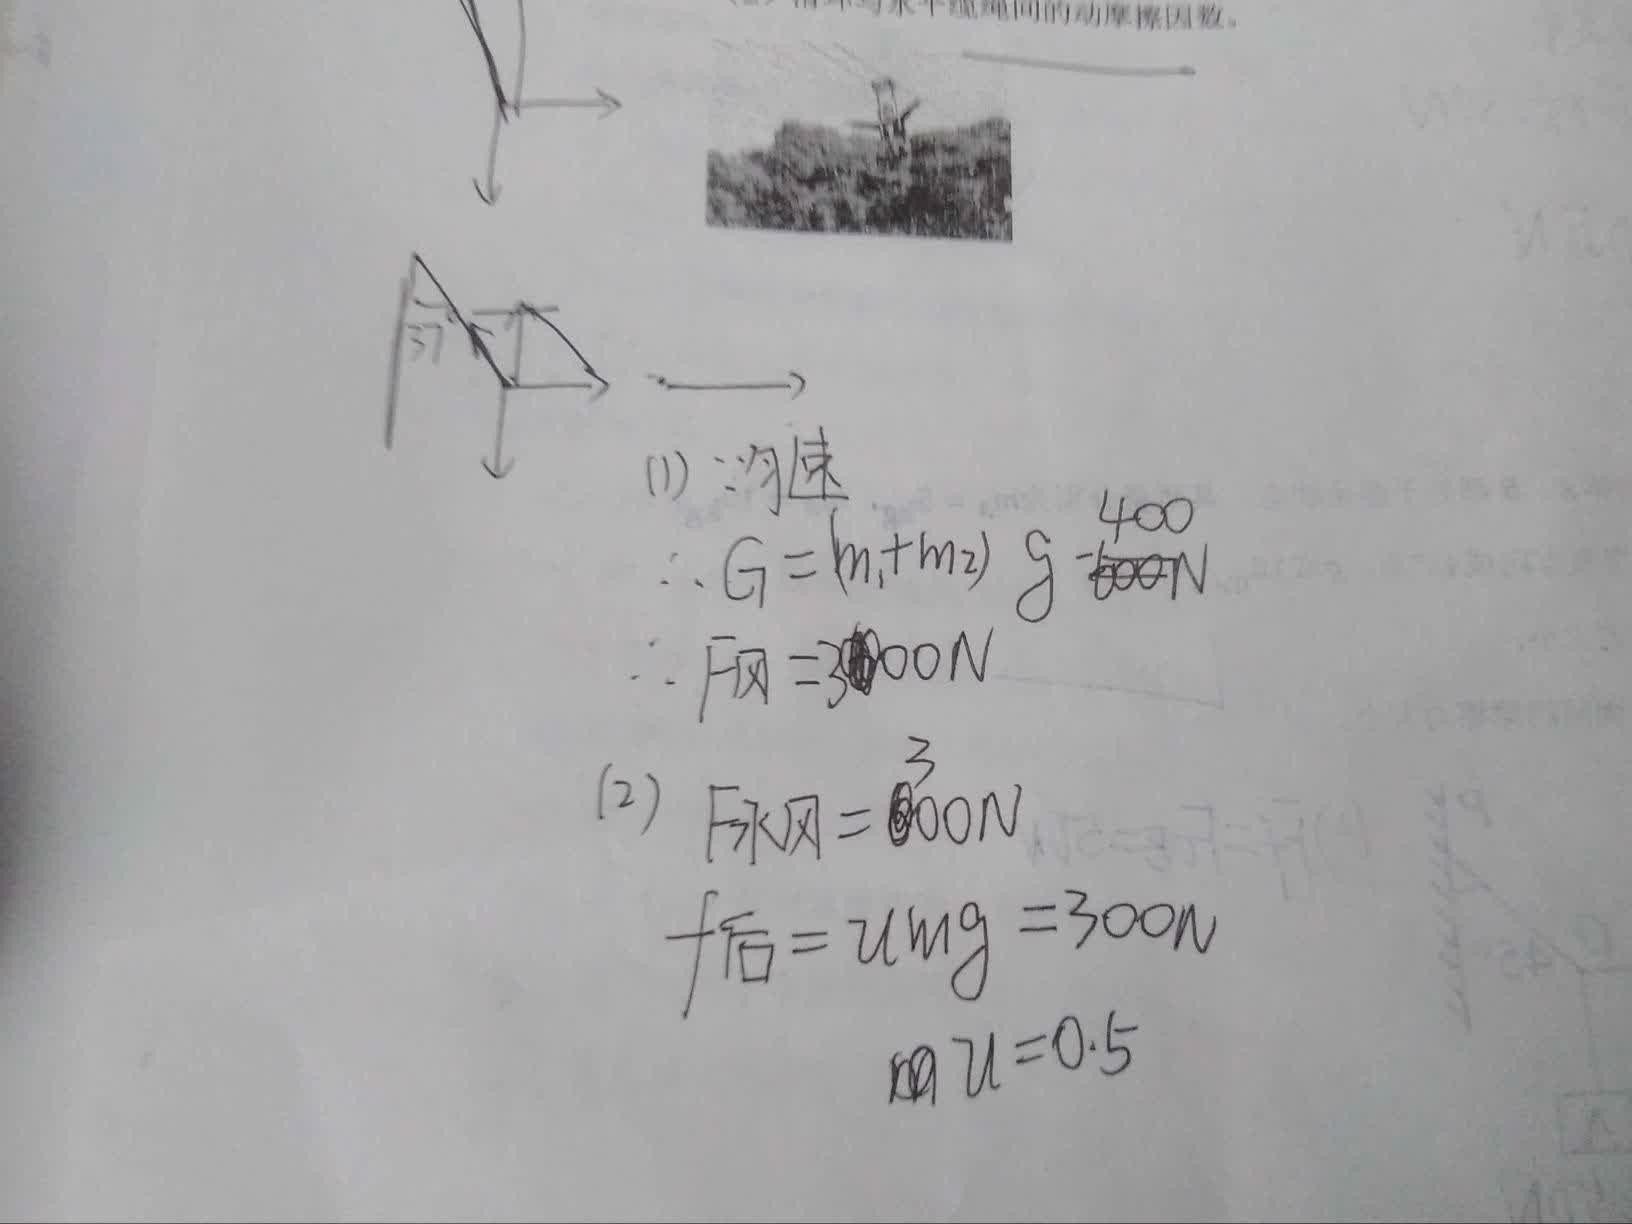 (2) 滑环与水平缆绳间的动摩擦因数。
37°
(1) ∵匀速
∴G=(m₁+m₂)g=400N
∴F风=300N
(2) F水风=300N
f后=umg=300N
u=0.5